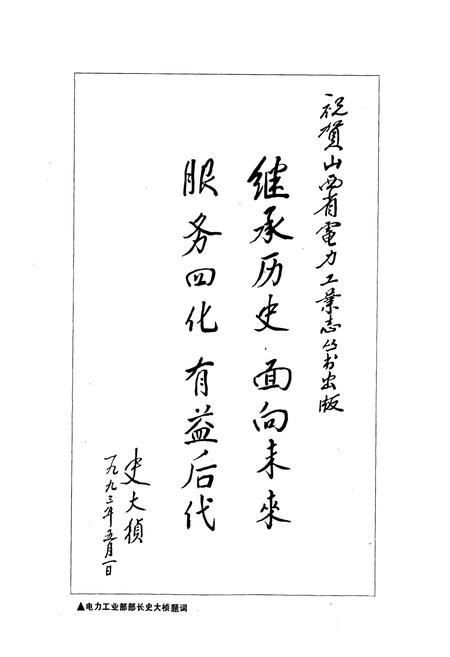 祝贺山西省電力工業志丛书出版
继承历史面向未來
服务四化有益后代
史大楨
一九九三年五月一日
▲电力工业部部长史大桢题词